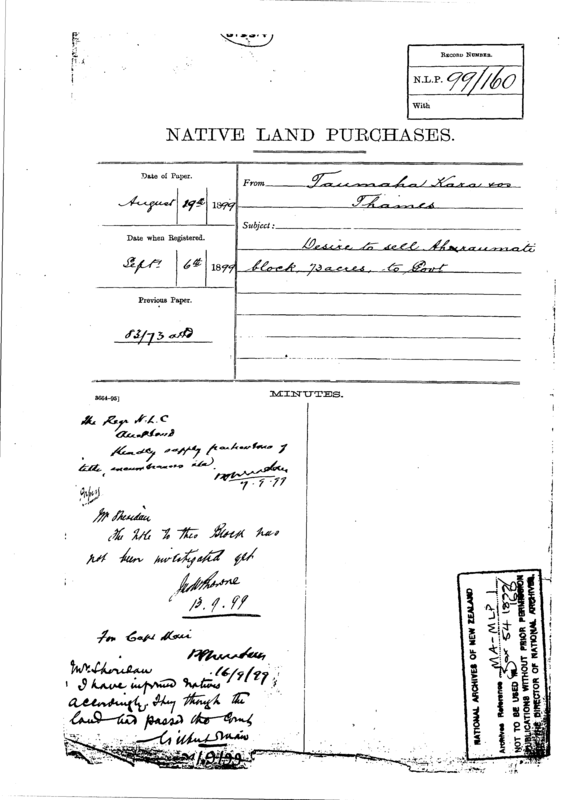 RECORD NUMBER.
N.L.P. 99/160
With
NATIVE LAND PURCHASES.
Date of Paper.
August 19th 1899
Date when Registered.
Septr 6th 1899
Previous Paper.
83/73
From Taumaha Kara
Thames
Subject:
Desire to sell
block, 73 acres, to Govt
3664-95]
MINUTES.
The Regr N.L.C
Auckland
Kindly supply particulars of
title, encumbrances
9.9.99
Mr Sheridan
The title to this Block has
not been investigated yet
13.9.99
For Capt Mair
16/9/99
Mr Sheridan
I have informed natives
accordingly. They though the
land had passed the Court
Gilbert Mair
NATIONAL ARCHIVES OF NEW ZEALAND
Archives Reference MA-MLP 1
54 1899/160
NOT TO BE USED IN
PUBLICATIONS WITHOUT PRIOR PERMISSION
OF THE DIRECTOR OF NATIONAL ARCHIVES.